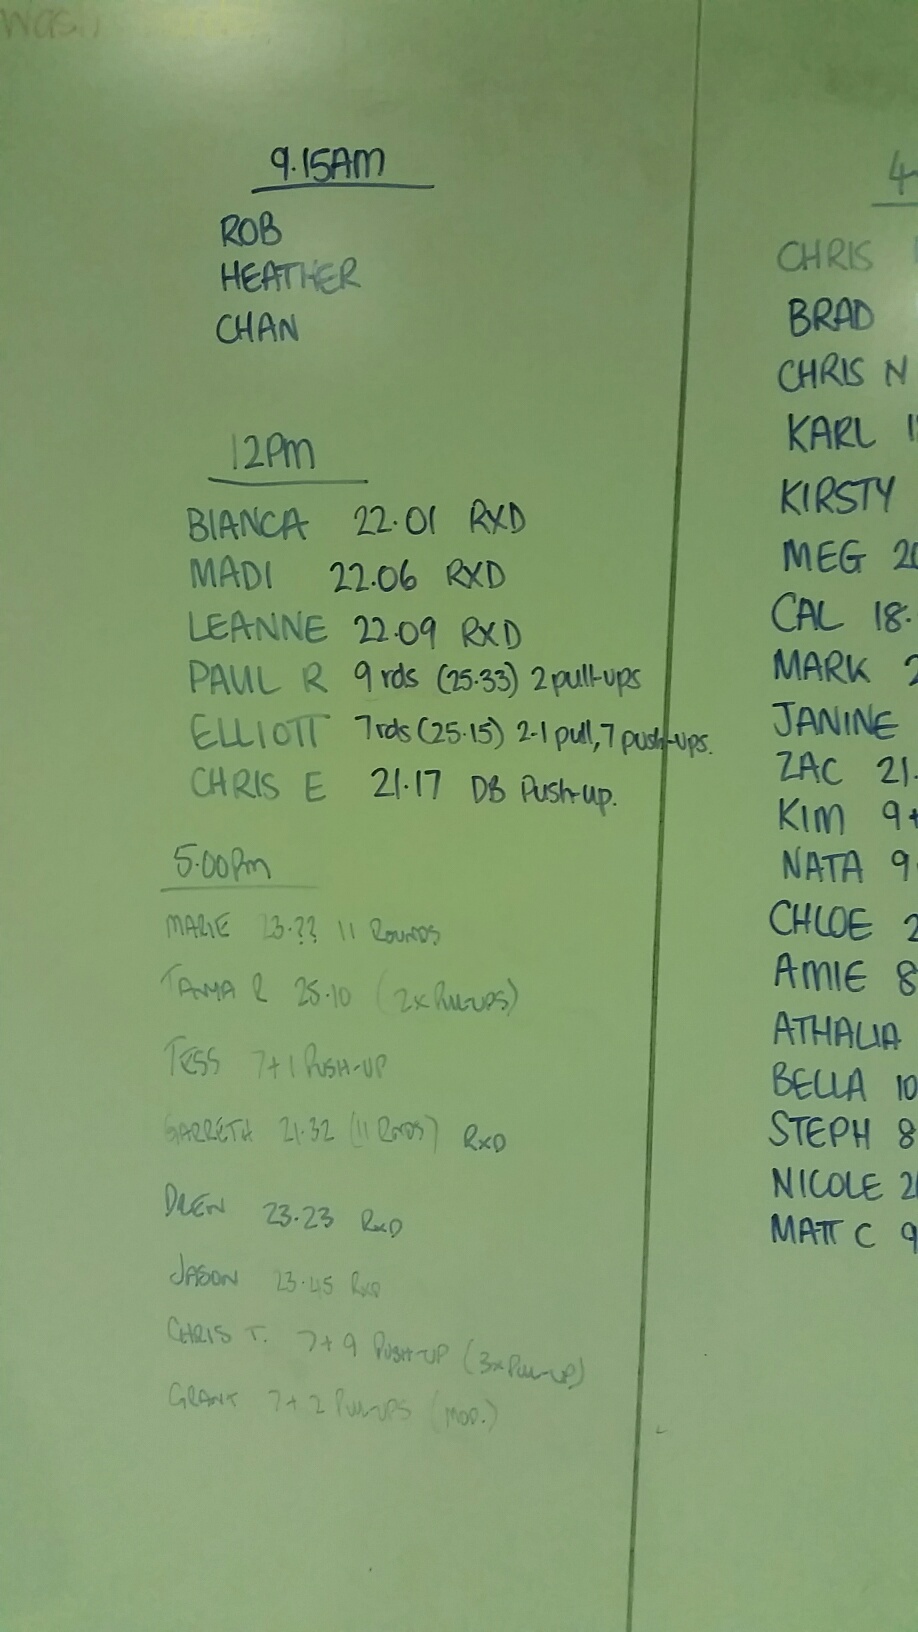 9.15AM
ROB
HEATHER
CHAN
12PM
BIANCA 22.01 RXD
MADI 22.06 RXD
LEANNE 22.09 RXD
PAUL R 9 rds (25.33) 2 pull-ups
ELLIOTT 7 rds (25.15) 2-1 pull, 7 push-ups.
CHRIS E 21.17 DB Push-up.
5.00PM
MARIE 23.?? 11 ROUNDS
R 25.10 (2x PULL-UPS)
TESS 7+1 PUSH-UP
GARRETH 21.32 (11 RNDS) RXD
DREN 23.23 RXD
JASON 23.45 RXD
CHRIS T. 7+9 PUSH-UP (3x PULL-UP)
GRANT 7+2 PULL-UPS (MOD.)
4
CHRIS
BRAD
CHRIS N
KARL
KIRSTY
MEG 20
CAL 18.
MARK 2
JANINE
ZAC 21.
KIM 9+
NATA 9
CHLOE 2
AMIE 8
ATHALIA
BELLA 10
STEPH 8
NICOLE 2
MATT C 9